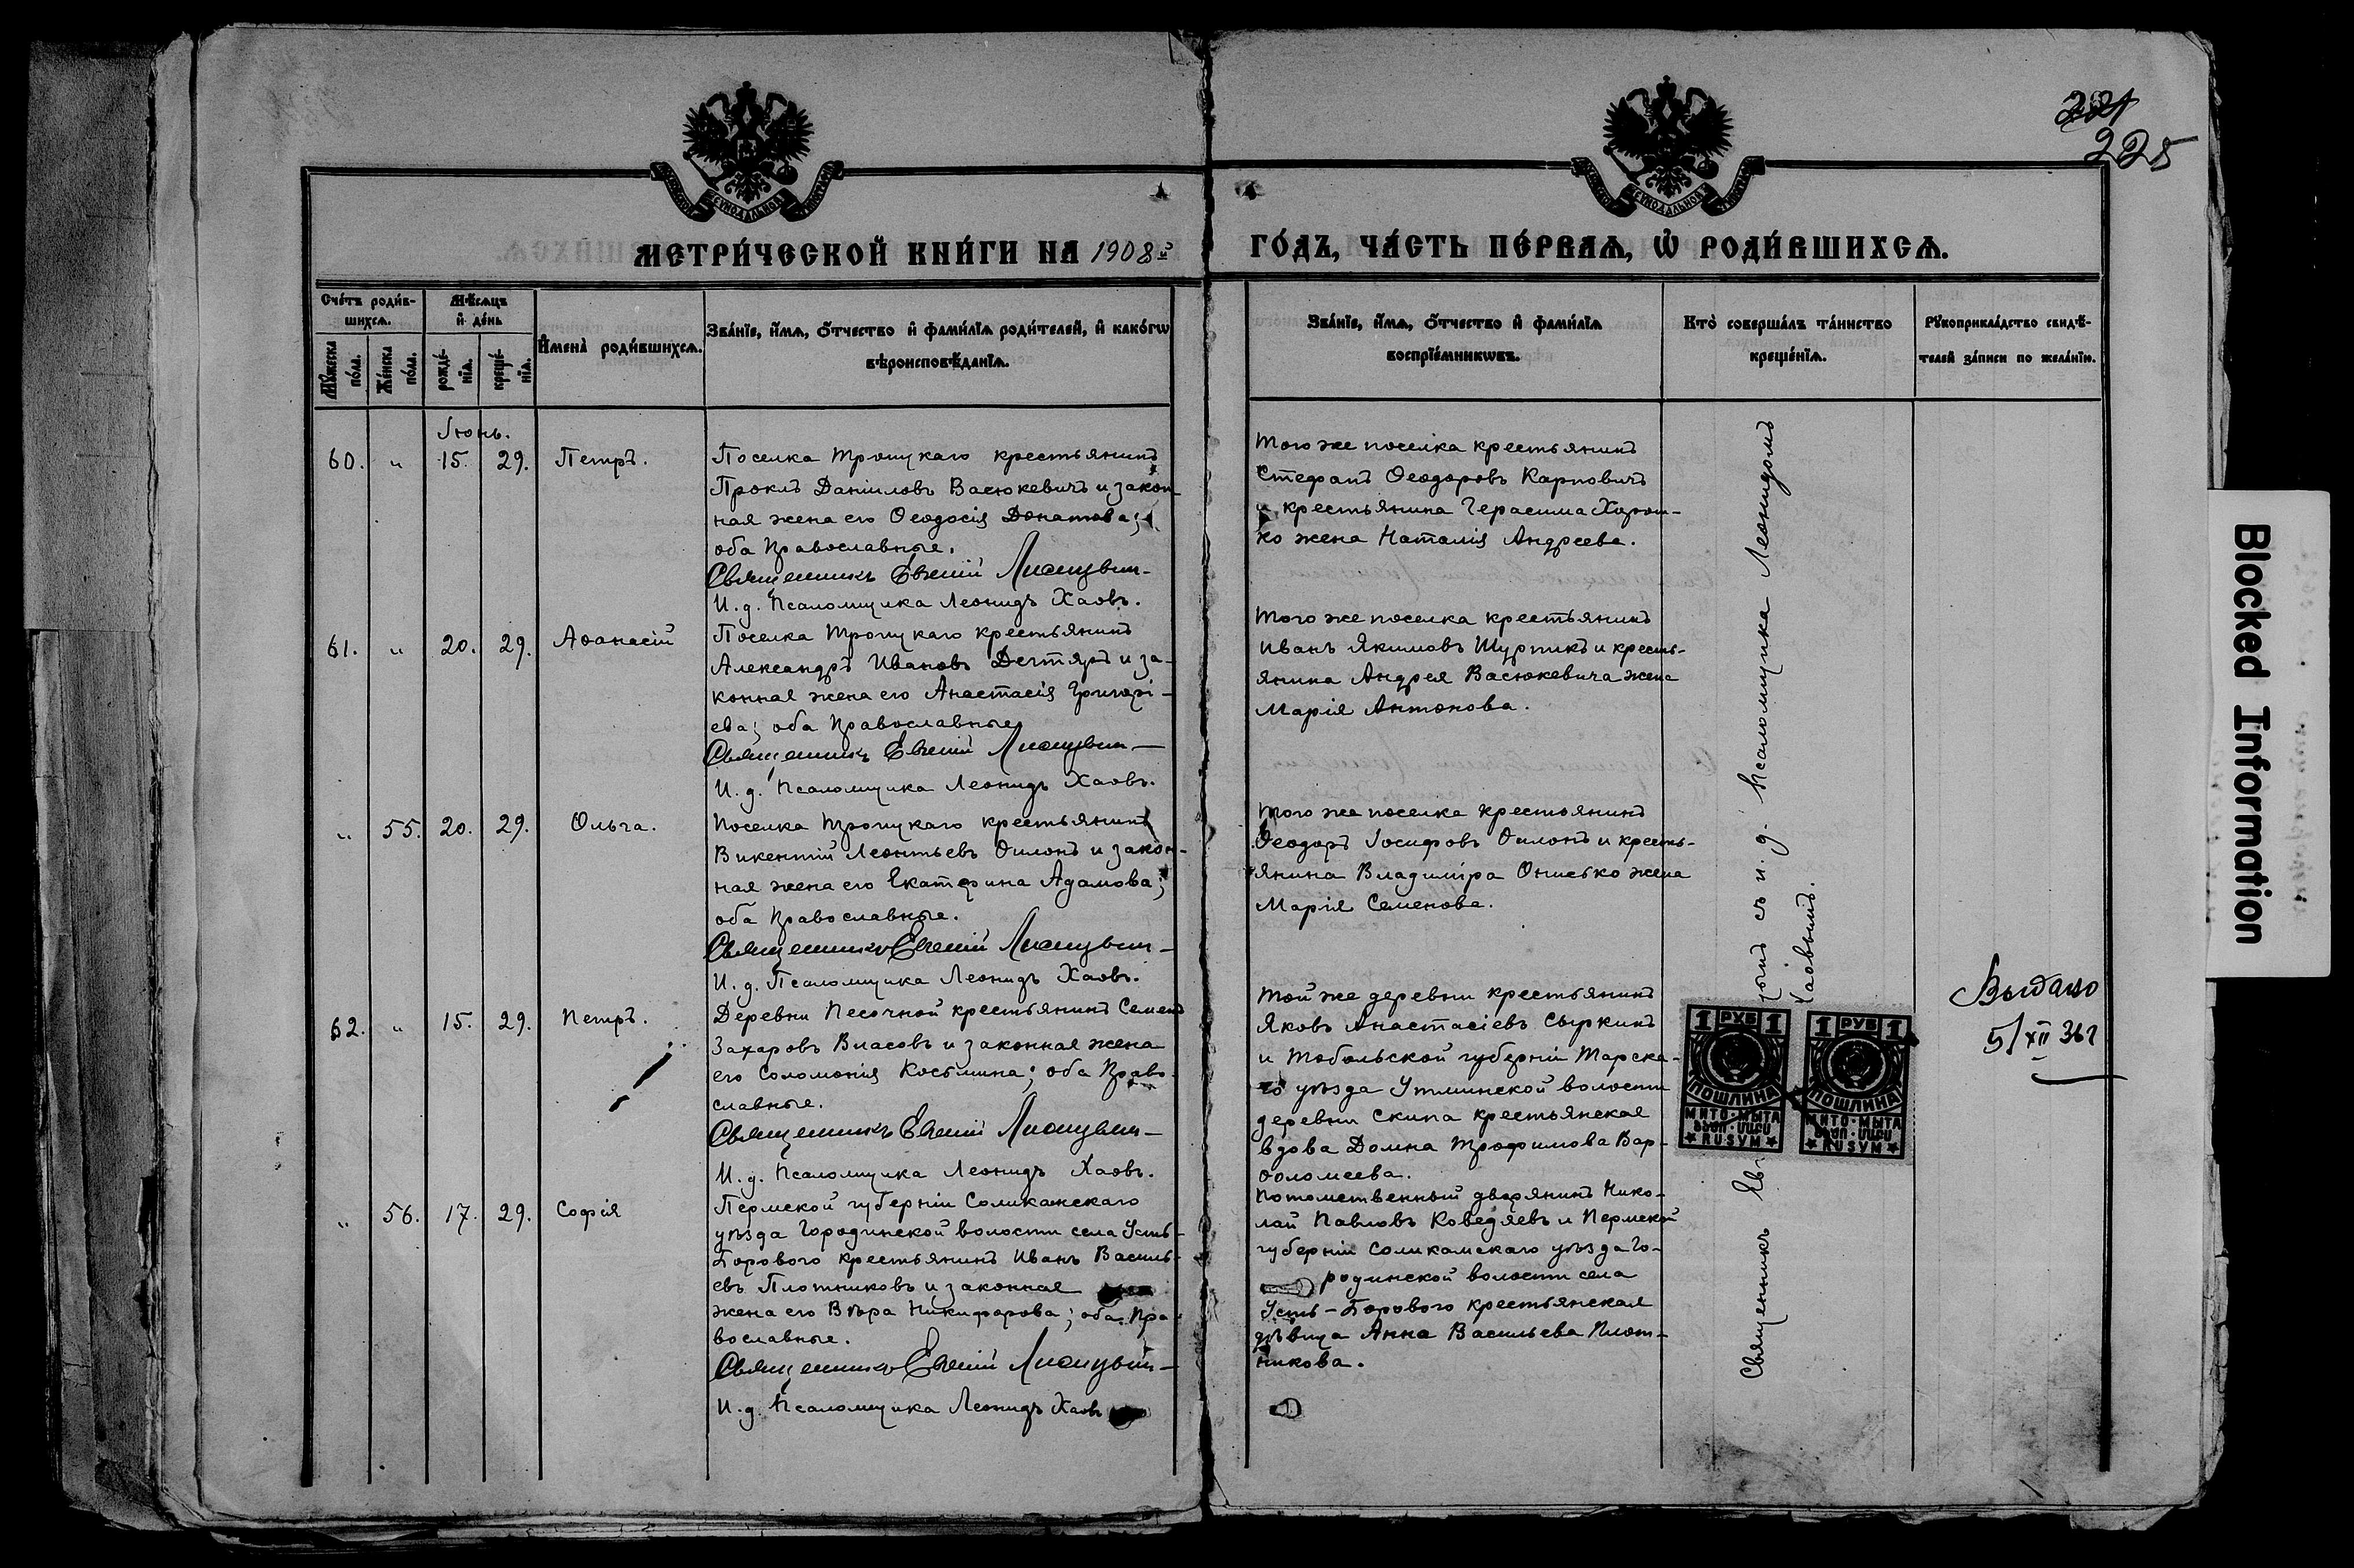 221
225
МЕТРИ́ЧЕСКОЙ КНИ́ГИ НА 1908й ГО́ДЪ, ЧА́СТЬ ПЕ́РВАѦ, Ѡ҆ РОДИ́ВШИХСѦ.
Сче́тъ роди́в-
шихсѧ.
Мꙋ́жеска по́ла.
Же́нска по́ла.
Мѣ́сѧцъ
и҆ де́нь
рожде́-
нїѧ.
креще́-
нїѧ.
И҆мена̀ роди́вшихсѧ.
Зва́нїе, и҆́мѧ, ѻ҆́тчество и҆ фами́лїѧ роди́телей, и҆ како́гѡ
вѣроисповѣ́данїѧ.
Зва́нїе, и҆́мѧ, ѻ҆́тчество и҆ фами́лїѧ
воспрїе́мникѡвъ.
Кто̀ соверша́лъ та́инство
креще́нїѧ.
Рꙋкоприкла́дство свидѣ́-
телей за́писи по жела́нїю.
Іюнь.
60. " 15. 29. Петръ.
Поселка Троицкаго крестьянинъ
Проклъ Даніиловъ Васюкевичъ и закон-
ная жена его Ѳеодосія Донатова;
оба православные.
Священникъ Евгеній Лисицын
И. д. Псаломщика Леонидъ Хаовъ.
Того же поселка крестьянинъ
Стефанъ Ѳеодоровъ Карповичъ
и крестьянина Герасима Хорош-
ко жена Наталія Андреева.
61. " 20. 29. Аѳанасій
Поселка Троицкаго крестьянинъ
Александръ Ивановъ Дегтяръ и за-
конная жена его Анастасія Григорі-
ева; оба православные
Священникъ Евгеній Лисицын
И. д. Псаломщика Леонидъ Хаовъ.
Того же поселка крестьянинъ
Иванъ Якимовъ Шурпикъ и кресть-
янина Андрея Васюкевича жена
Марія Антонова.
" 55. 20. 29. Ольга.
Поселка Троицкаго крестьянинъ
Викентій Леонтьевъ Ѳилонъ и закон-
ная жена его Екатерина Адамова;
оба православные.
Священникъ Евгеній Лисицын
И. д. Псаломщика Леонидъ Хаовъ.
Того же поселка крестьянинъ
Ѳеодоръ Іосифовъ Ѳилонъ и кресть-
янина Владиміра Онисько жена
Марія Семенова.
62. " 15. 29. Петръ.
Деревни Песочной крестьянинъ Семенъ
Захаровъ Власовъ и законная жена
его Соломонія Косьмина; оба Право-
славные.
Священникъ Евгеній Лисицын
И. д. Псаломщика Леонидъ Хаовъ.
Той же деревни крестьянинъ
Яковъ Анастасіевъ Сыркинъ
и Тобольской губерніи Тарска-
го уѣзда Утминской волости
деревни Скипа крестьянская
вдова Домна Трофимова Вар-
ѳоломеева.
" 56. 17. 29. Софія
Пермской губерніи Соликамскаго
уѣзда Городинской волости села Усть-
Борового крестьянинъ Иванъ Василь-
евъ Плотниковъ и законная
жена его Вѣра Никифорова; оба Пра-
вославные.
Священникъ Евгеній Лисицын
И. д. Псаломщика Леонидъ Хаовъ
Потомственный дворянинъ Нико-
лай Павловъ Коведяевъ и Пермской
губерніи Соликамскаго уѣзда Го-
родинской волости села
Усть-Борового крестьянская
дѣвица Анна Васильева Плот-
никова.
Священникъ Евг съ и. д. Псаломщика Леонидомъ
Хаовымъ.
1 РУБ 1
ПОШЛИНА
МИТО·МЫТА
RUSYM
1 РУБ 1
ПОШЛИНА
МИТО·МЫТА
RUSYM
Выдано
5/XII 36г
Blocked Information